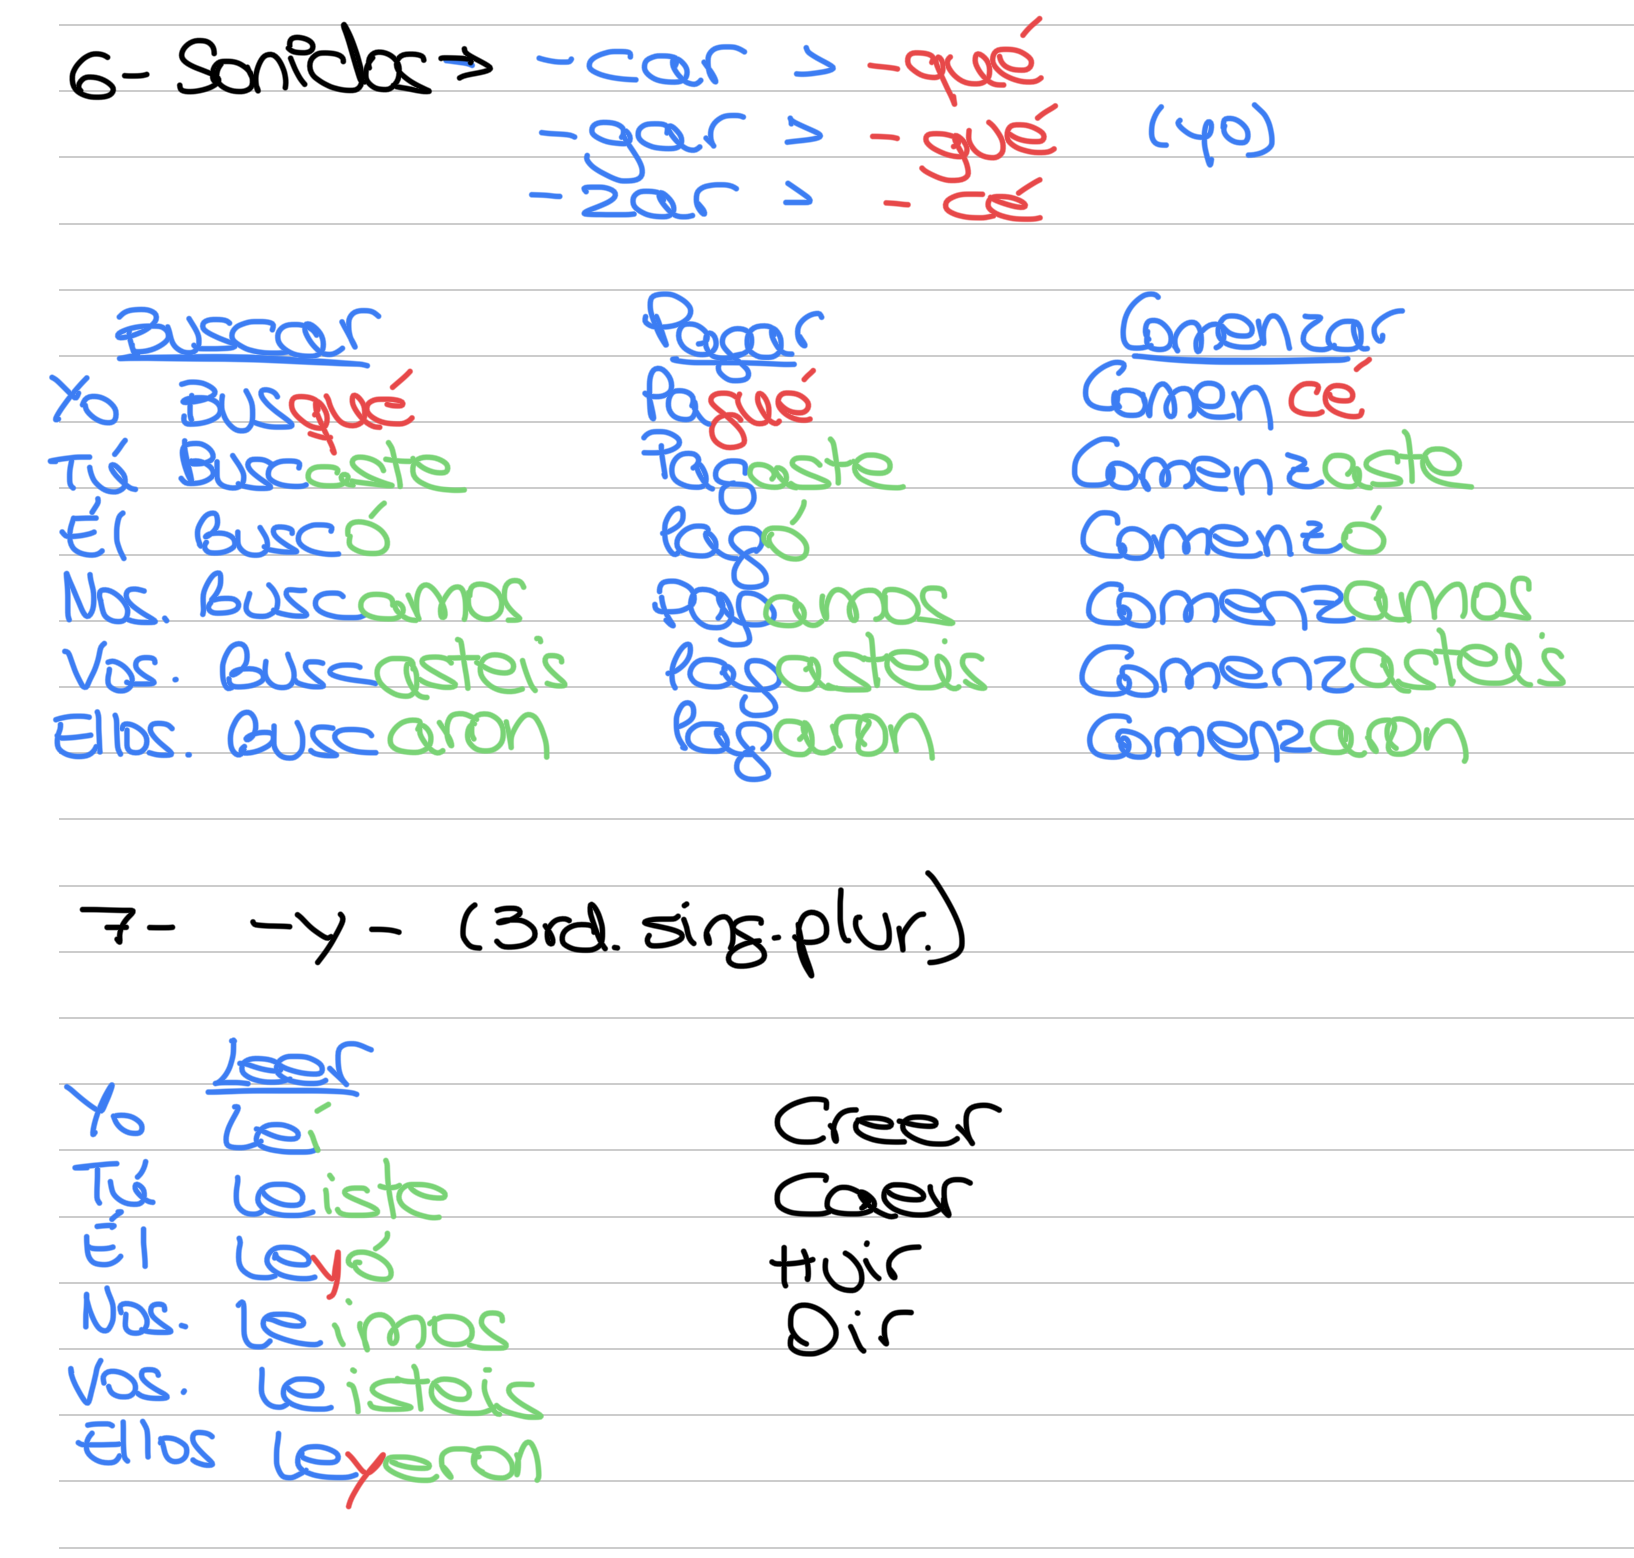 6- Sonidos → -car > -qué
-gar > -gué (yo)
-zar > -cé
Buscar Pagar Comenzar
Yo Busqué Pagué Comencé
Tú Buscaste Pagaste Comenzaste
Él Buscó Pagó Comenzó
Nos. Buscamos Pagamos Comenzamos
Vos. Buscasteis Pagasteis Comenzasteis
Ellos. Buscaron Pagaron Comenzaron
7- -y- (3rd. sing.plur.)
Leer
Yo Leí Creer
Tú Leiste Caer
Él Leyó Huir
Nos. Leimos Oir
Vos. Leisteis
Ellos Leyeron